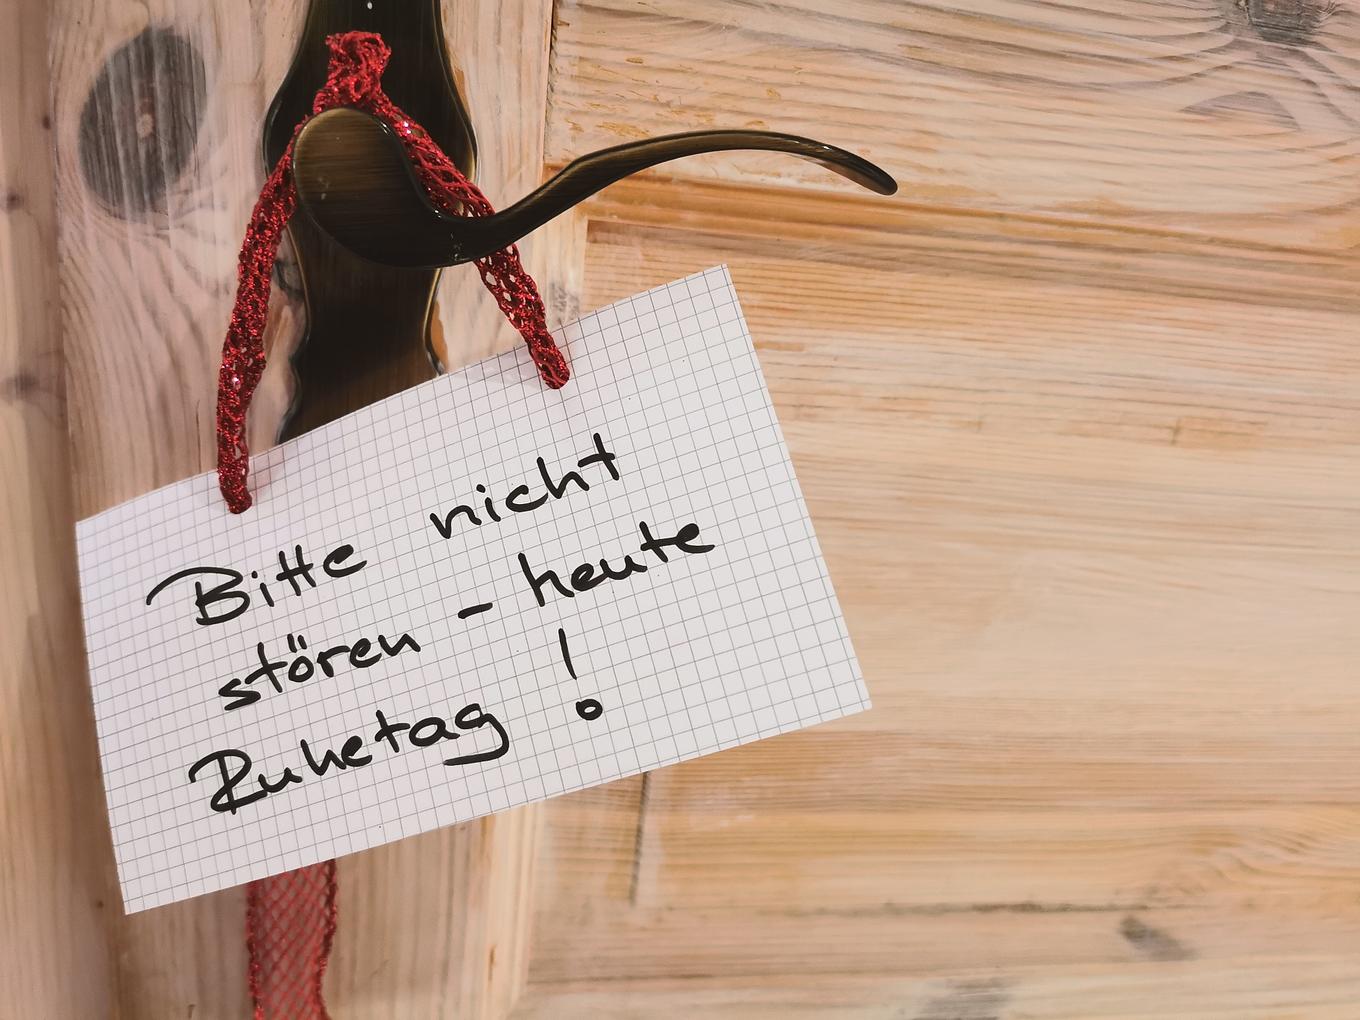 Bitte nicht
stören - heute
Ruhetag !